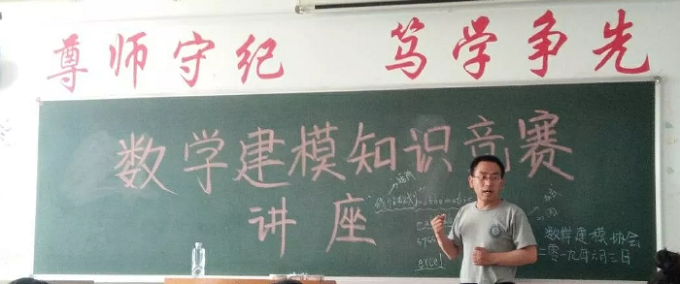 尊师守纪 笃学争先
数学建模知识竞赛
讲座
数学建模协会
二零一九年六月二日